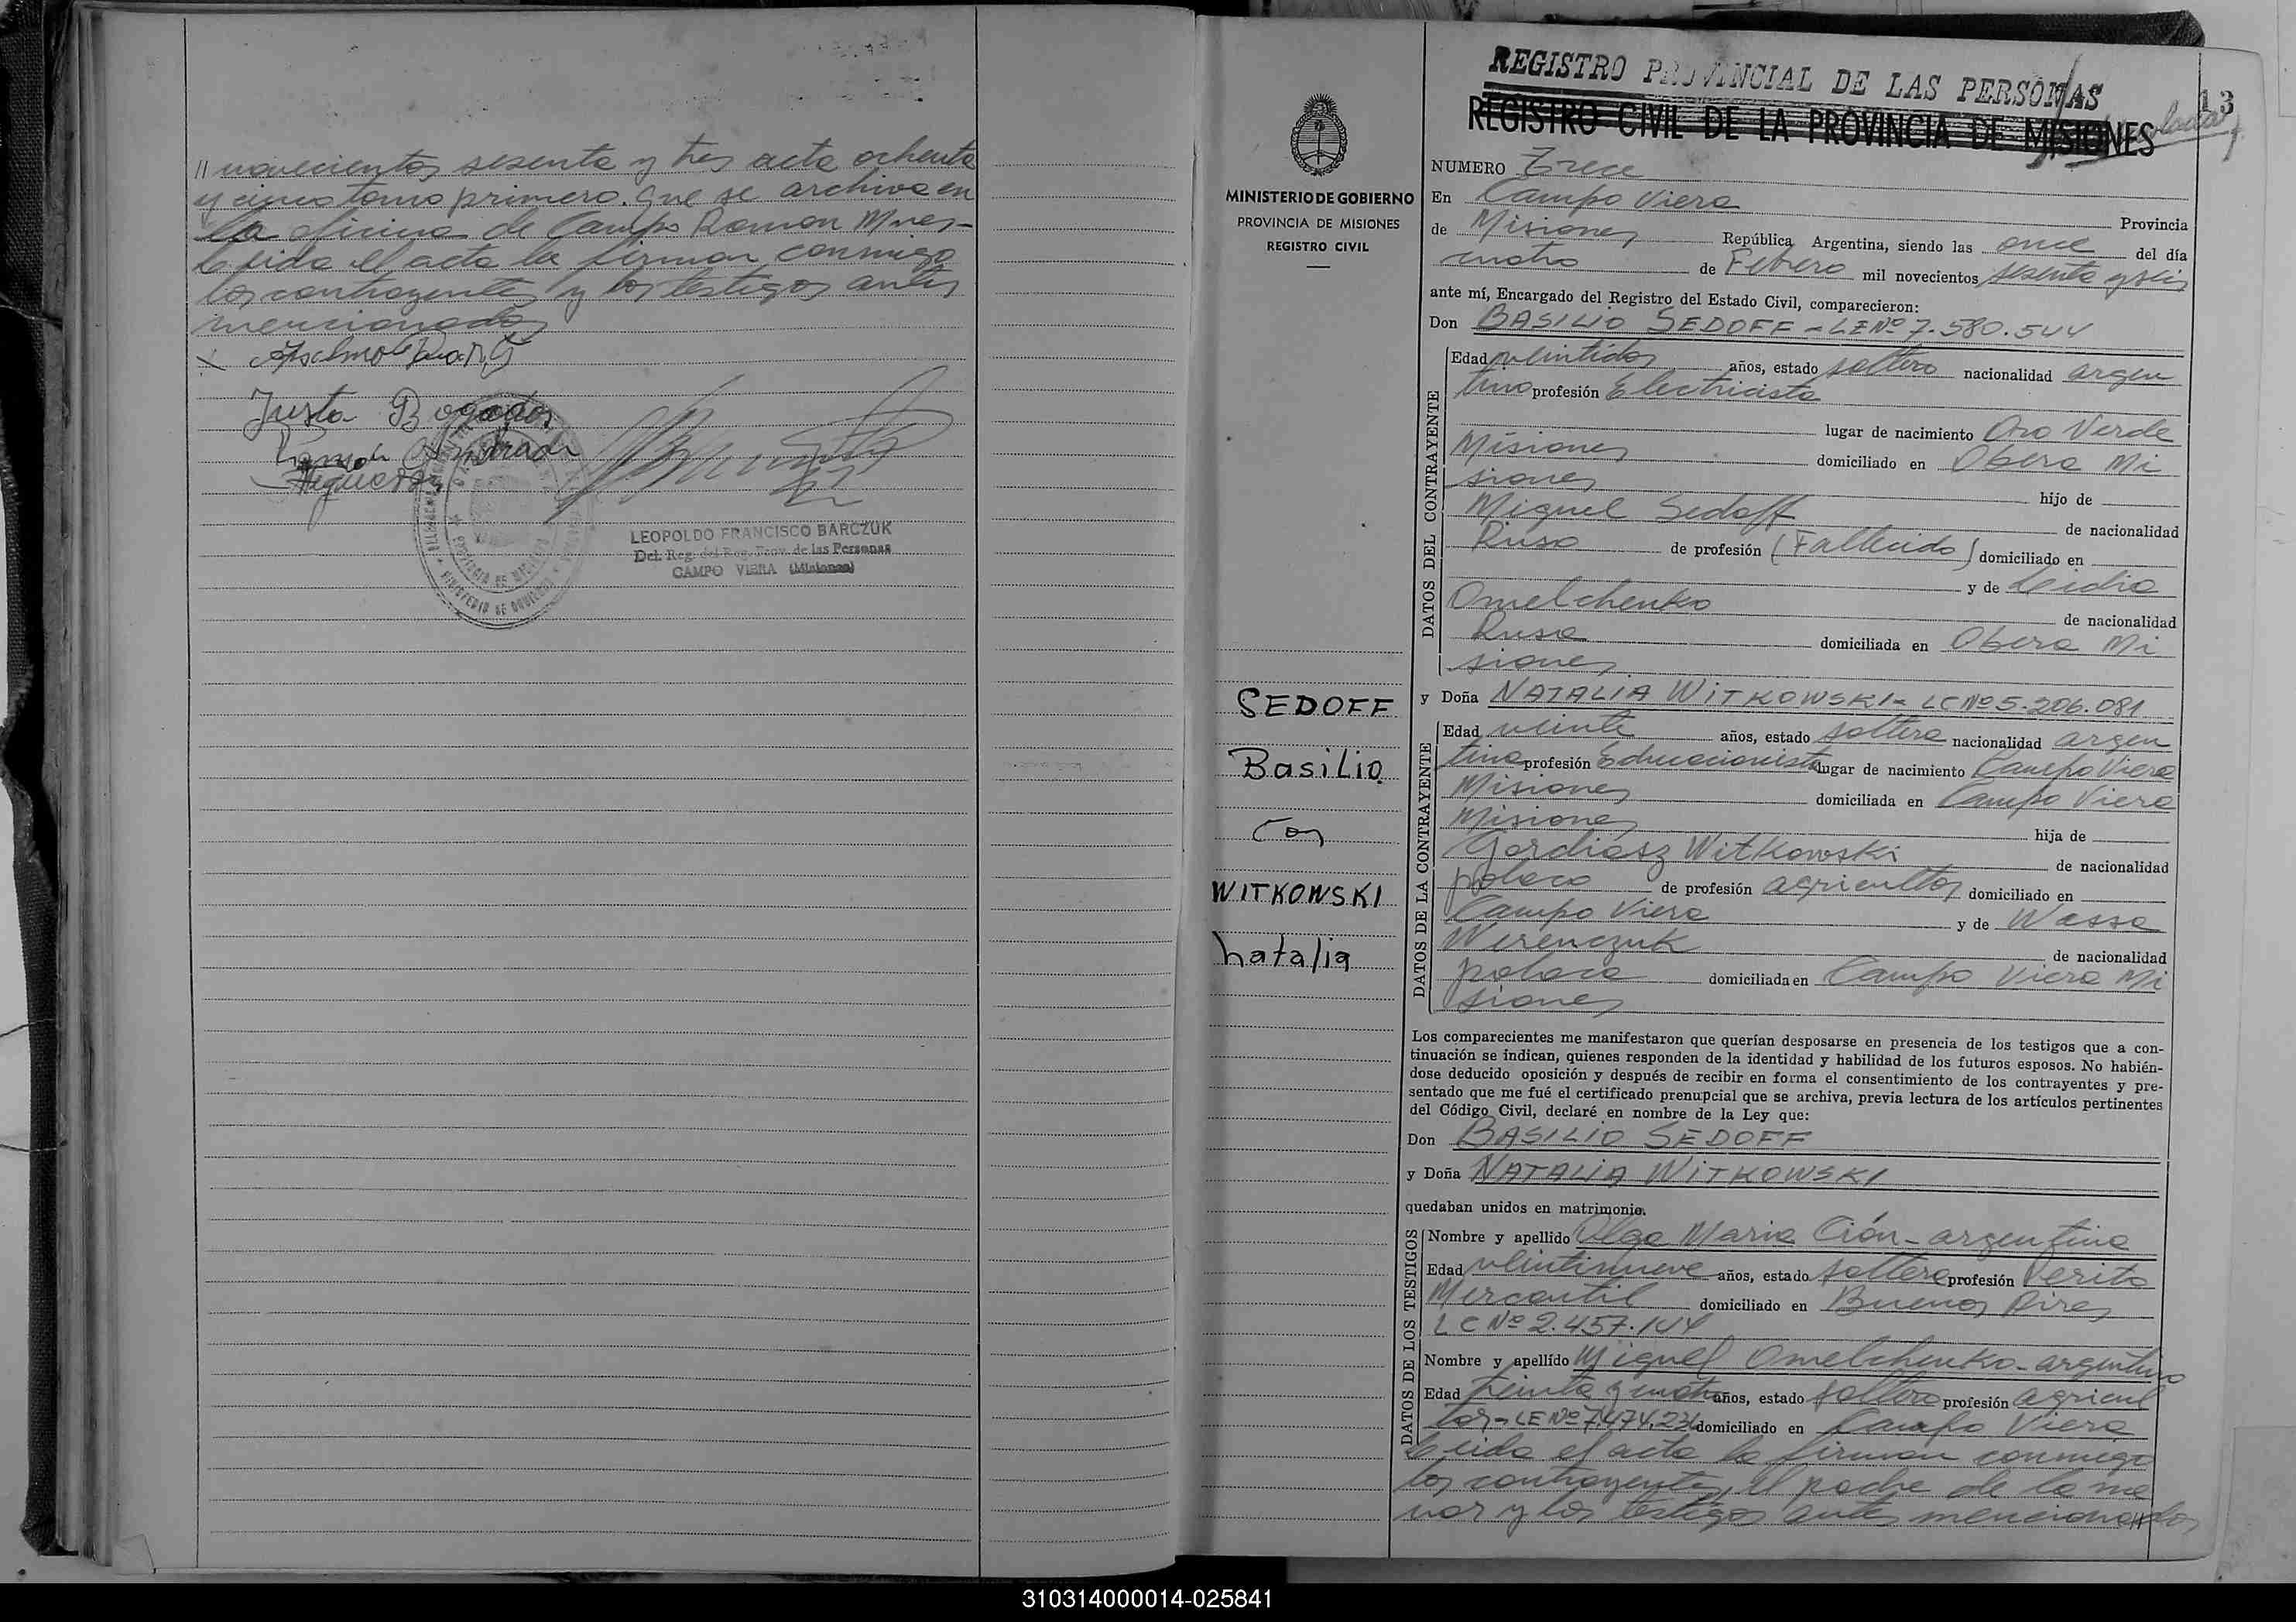 // novecientos sesenta y tres acta ochenta
y cinco tomo primero. que se archiva en
la oficina de Campo Ramon Mnes-
leida el acta la firman conmigo
los contrayentes y los testigos antes
mencionados
Justa Bogados
LEOPOLDO FRANCISCO BARCZUK
Del. Reg. del Reg. Prov. de las Personas
CAMPO VIERA (Misiones)
REGISTRO PROVINCIAL DE LAS PERSONAS
REGISTRO CIVIL DE LA PROVINCIA DE MISIONES
13
MINISTERIO DE GOBIERNO
PROVINCIA DE MISIONES
REGISTRO CIVIL
SEDOFF
Basilio
con
WITKOWSKI
Natalia
NUMERO Trece
En Campo Viera Provincia
de Misiones República Argentina, siendo las once del día
cuatro de Febrero mil novecientos sesenta y seis
ante mí, Encargado del Registro del Estado Civil, comparecieron:
Don BASILIO SEDOFF - LE Nº 7.580.544
DATOS DEL CONTRAYENTE
Edad veintidos años, estado soltero nacionalidad argen
tino profesión Electricista
lugar de nacimiento Oro Verde
Misiones domiciliado en Obera Mi
siones hijo de
Miguel Sedoff de nacionalidad
Ruso de profesión (Fallecido) domiciliado en
y de Leidia
Omelchenko de nacionalidad
Rusa domiciliada en Obera Mi
siones
y Doña NATALIA WITKOWSKI - LC Nº 5.206.081
DATOS DE LA CONTRAYENTE
Edad veinte años, estado soltera nacionalidad argen
tina profesión Educacionista lugar de nacimiento Campo Viera
Misiones domiciliada en Campo Viera
Misiones hija de
Gordiasz Witkowski de nacionalidad
polaco de profesión agricultor domiciliado en
Campo Viera y de Wassa
Werenczuk de nacionalidad
polaca domiciliada en Campo Viera Mi
siones
Los comparecientes me manifestaron que querían desposarse en presencia de los testigos que a con-
tinuación se indican, quienes responden de la identidad y habilidad de los futuros esposos. No habién-
dose deducido oposición y después de recibir en forma el consentimiento de los contrayentes y pre-
sentado que me fué el certificado prenupcial que se archiva, previa lectura de los artículos pertinentes
del Código Civil, declaré en nombre de la Ley que:
Don BASILIO SEDOFF
y Doña NATALIA WITKOWSKI
quedaban unidos en matrimonio.
DATOS DE LOS TESTIGOS
Nombre y apellido Olga Maria Ción - argentina
Edad veintinueve años, estado soltera profesión Perito
Mercantil domiciliado en Buenos Aires
LC Nº 2.457.144
Nombre y apellido Miguel Omelchenko - argentino
Edad treinta y cuatro años, estado soltero profesión agricul
tor - LE Nº 7.474.234 domiciliado en Campo Viera
leida el acta la firman conmigo
los contrayentes, el padre de la me
nor y los testigos antes mencionados
310314000014-025841